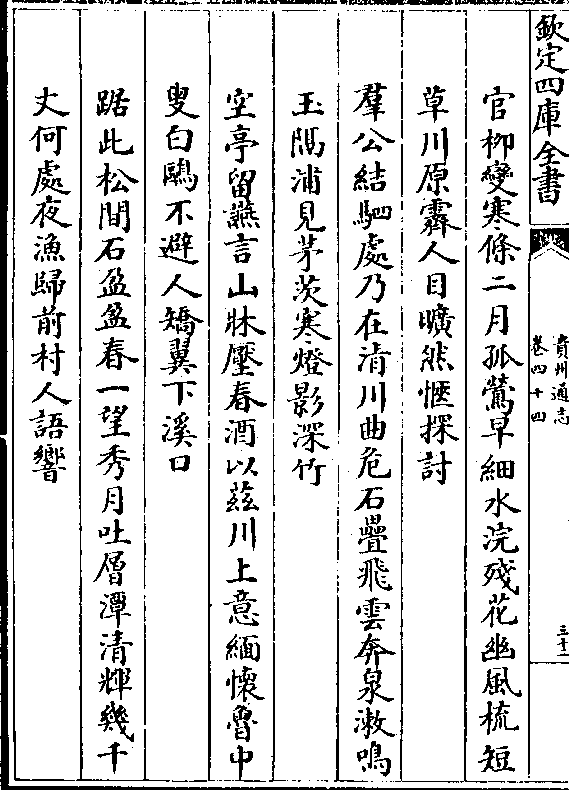 欽定四庫全書
貴州通志
卷四十四
三十二
官柳變寒條二月孤鶯早細水浣殘花幽風梳短
草川原霽人目曠然愜探討
羣公結駟處乃在清川曲危石疊飛雲奔泉漱鳴
玉隅浦見茅茨寒燈影深竹
空亭留讌言山牀壓春酒以茲川上意緬懷魯中
叟白鷗不避人矯翼下溪口
踞此松間石盈盈春一望秀月吐層潭清輝幾千
丈何處夜漁歸前村人語響